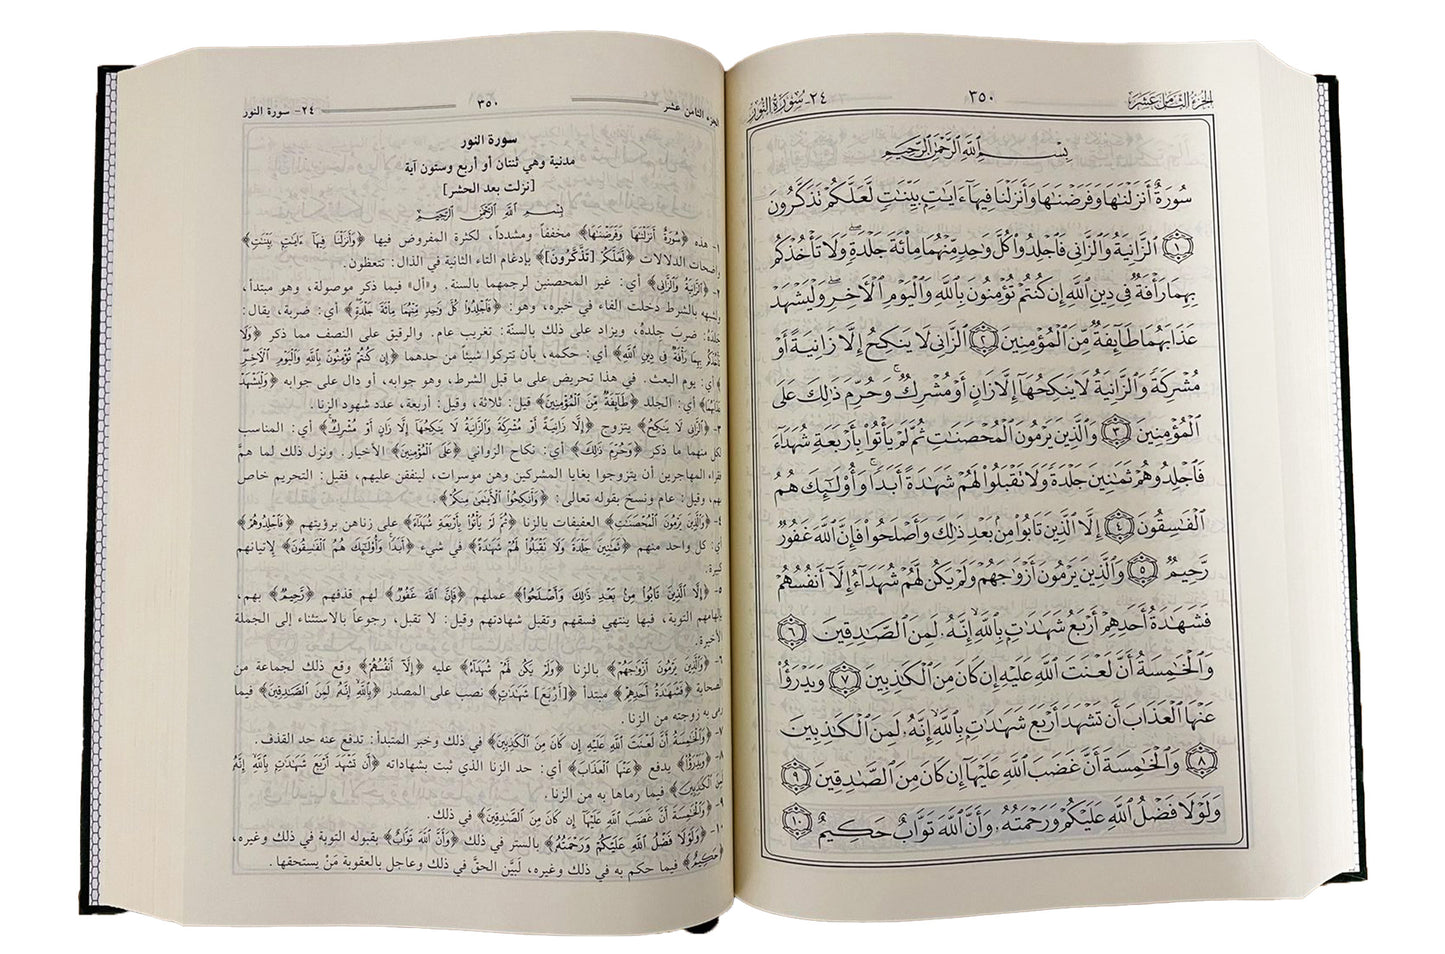 الجزء الثامن عشر ٣٥٠ ٢٤- سورة النور
بِسْمِ ٱللَّهِ ٱلرَّحْمَٰنِ ٱلرَّحِيمِ
سُورَةٌ أَنزَلْنَٰهَا وَفَرَضْنَٰهَا وَأَنزَلْنَا فِيهَآ ءَايَٰتٍۭ بَيِّنَٰتٍ لَّعَلَّكُمْ تَذَكَّرُونَ
١ ٱلزَّانِيَةُ وَٱلزَّانِى فَٱجْلِدُوا۟ كُلَّ وَٰحِدٍ مِّنْهُمَا مِا۟ئَةَ جَلْدَةٍ ۖ وَلَا تَأْخُذْكُم
بِهِمَا رَأْفَةٌ فِى دِينِ ٱللَّهِ إِن كُنتُمْ تُؤْمِنُونَ بِٱللَّهِ وَٱلْيَوْمِ ٱلْءَاخِرِ ۖ وَلْيَشْهَدْ
عَذَابَهُمَا طَآئِفَةٌ مِّنَ ٱلْمُؤْمِنِينَ ٢ ٱلزَّانِى لَا يَنكِحُ إِلَّا زَانِيَةً أَوْ
مُشْرِكَةً وَٱلزَّانِيَةُ لَا يَنكِحُهَآ إِلَّا زَانٍ أَوْ مُشْرِكٌ ۚ وَحُرِّمَ ذَٰلِكَ عَلَى
ٱلْمُؤْمِنِينَ ٣ وَٱلَّذِينَ يَرْمُونَ ٱلْمُحْصَنَٰتِ ثُمَّ لَمْ يَأْتُوا۟ بِأَرْبَعَةِ شُهَدَآءَ
فَٱجْلِدُوهُمْ ثَمَٰنِينَ جَلْدَةً وَلَا تَقْبَلُوا۟ لَهُمْ شَهَٰدَةً أَبَدًا ۚ وَأُو۟لَٰٓئِكَ هُمُ
ٱلْفَٰسِقُونَ ٤ إِلَّا ٱلَّذِينَ تَابُوا۟ مِنۢ بَعْدِ ذَٰلِكَ وَأَصْلَحُوا۟ فَإِنَّ ٱللَّهَ غَفُورٌ
رَّحِيمٌ ٥ وَٱلَّذِينَ يَرْمُونَ أَزْوَٰجَهُمْ وَلَمْ يَكُن لَّهُمْ شُهَدَآءُ إِلَّآ أَنفُسُهُمْ
فَشَهَٰدَةُ أَحَدِهِمْ أَرْبَعُ شَهَٰدَٰتٍۭ بِٱللَّهِ ۙ إِنَّهُۥ لَمِنَ ٱلصَّٰدِقِينَ ٦
وَٱلْخَٰمِسَةُ أَنَّ لَعْنَتَ ٱللَّهِ عَلَيْهِ إِن كَانَ مِنَ ٱلْكَٰذِبِينَ ٧ وَيَدْرَؤُا۟
عَنْهَا ٱلْعَذَابَ أَن تَشْهَدَ أَرْبَعَ شَهَٰدَٰتٍۭ بِٱللَّهِ ۙ إِنَّهُۥ لَمِنَ ٱلْكَٰذِبِينَ
٨ وَٱلْخَٰمِسَةَ أَنَّ غَضَبَ ٱللَّهِ عَلَيْهَآ إِن كَانَ مِنَ ٱلصَّٰدِقِينَ ٩
وَلَوْلَا فَضْلُ ٱللَّهِ عَلَيْكُمْ وَرَحْمَتُهُۥ وَأَنَّ ٱللَّهَ تَوَّابٌ حَكِيمٌ ١٠
الجزء الثامن عشر ٣٥٠ ٢٤- سورة النور
سورة النور
مدنية وهي ثنتان أو أربع وستون آية
[نزلت بعد الحشر]
بسم الله الرحمن الرحيم
١- هذه ﴿سُورَةٌ أَنزَلْنَٰهَا وَفَرَضْنَٰهَا﴾ مخففاً ومشدداً، لكثرة المفروض فيها ﴿وَأَنزَلْنَا فِيهَآ ءَايَٰتٍۭ بَيِّنَٰتٍ﴾
واضحات الدلالات ﴿لَّعَلَّكُمْ [تَذَّكَّرُونَ]﴾ بإدغام التاء الثانية في الذال: تتعظون.
٢- ﴿ٱلزَّانِيَةُ وَٱلزَّانِى﴾ أي: غير المحصنين لرجمهما بالسنة. و«أل» فيما ذكر موصولة، وهو مبتدأ،
ولشبهه بالشرط دخلت الفاء في خبره، وهو: ﴿فَٱجْلِدُوا۟ كُلَّ وَٰحِدٍ مِّنْهُمَا مِا۟ئَةَ جَلْدَةٍ﴾ أي: ضربة، يقال:
جَلَدَهُ: ضرب جِلدَهُ، ويزاد على ذلك بالسنّة: تغريب عام. والرقيق على النصف مما ذكر ﴿وَلَا
تَأْخُذْكُم بِهِمَا رَأْفَةٌ فِى دِينِ ٱللَّهِ﴾ أي: حكمه، بأن تتركوا شيئاً من حدهما ﴿إِن كُنتُمْ تُؤْمِنُونَ بِٱللَّهِ وَٱلْيَوْمِ ٱلْءَاخِرِ
﴾ أي: يوم البعث. في هذا تحريض على ما قبل الشرط، وهو جوابه، أو دال على جوابه ﴿وَلْيَشْهَدْ
عَذَابَهُمَا﴾ أي: الجلد ﴿طَآئِفَةٌ مِّنَ ٱلْمُؤْمِنِينَ﴾ قيل: ثلاثة، وقيل: أربعة، عدد شهود الزنا.
٣- ﴿ٱلزَّانِى لَا يَنكِحُ﴾ يتزوج ﴿إِلَّا زَانِيَةً أَوْ مُشْرِكَةً وَٱلزَّانِيَةُ لَا يَنكِحُهَآ إِلَّا زَانٍ أَوْ مُشْرِكٌ﴾ أي: المناسب
لكل منهما ما ذكر ﴿وَحُرِّمَ ذَٰلِكَ﴾ أي: نكاح الزواني ﴿عَلَى ٱلْمُؤْمِنِينَ﴾ الأخيار. ونزل ذلك لما همَّ
فقراء المهاجرين أن يتزوجوا بغايا المشركين وهن موسرات، لينفقن عليهم، فقيل: التحريم خاص
بهم، وقيل: عام ونسخ بقوله تعالى: ﴿وَأَنكِحُوا۟ ٱلْأَيَٰمَىٰ مِنكُمْ﴾
٤- ﴿وَٱلَّذِينَ يَرْمُونَ ٱلْمُحْصَنَٰتِ﴾ العفيفات بالزنا ﴿ثُمَّ لَمْ يَأْتُوا۟ بِأَرْبَعَةِ شُهَدَآءَ﴾ على زناهن برؤيتهم ﴿فَٱجْلِدُوهُمْ﴾
أي: كل واحد منهم ﴿ثَمَٰنِينَ جَلْدَةً وَلَا تَقْبَلُوا۟ لَهُمْ شَهَٰدَةً﴾ في شيء ﴿أَبَدًا وَأُو۟لَٰٓئِكَ هُمُ ٱلْفَٰسِقُونَ﴾ لإتيانهم
كبيرة.
٥- ﴿إِلَّا ٱلَّذِينَ تَابُوا۟ مِنۢ بَعْدِ ذَٰلِكَ وَأَصْلَحُوا۟﴾ عملهم ﴿فَإِنَّ ٱللَّهَ غَفُورٌ﴾ لهم قذفهم ﴿رَّحِيمٌ﴾ بهم،
بإلهامهم التوبة، فبها ينتهي فسقهم وتقبل شهادتهم وقيل: لا تقبل، رجوعاً بالاستثناء إلى الجملة
الأخيرة.
٦- ﴿وَٱلَّذِينَ يَرْمُونَ أَزْوَٰجَهُمْ﴾ بالزنا ﴿وَلَمْ يَكُن لَّهُمْ شُهَدَآءُ﴾ عليه ﴿إِلَّآ أَنفُسُهُمْ﴾ وقع ذلك لجماعة من
الصحابة ﴿فَشَهَٰدَةُ أَحَدِهِمْ﴾ مبتدأ ﴿[أَرْبَعَ] شَهَٰدَٰتٍ﴾ نصب على المصدر ﴿بِٱللَّهِ إِنَّهُۥ لَمِنَ ٱلصَّٰدِقِينَ﴾ فيما
رمى به زوجته من الزنا.
٧- ﴿وَٱلْخَٰمِسَةُ أَنَّ لَعْنَتَ ٱللَّهِ عَلَيْهِ إِن كَانَ مِنَ ٱلْكَٰذِبِينَ﴾ في ذلك وخبر المتبدأ: تدفع عنه حد القذف.
٨- ﴿وَيَدْرَؤُا۟﴾ يدفع ﴿عَنْهَا ٱلْعَذَابَ﴾ أي: حد الزنا الذي ثبت بشهاداته ﴿أَن تَشْهَدَ أَرْبَعَ شَهَٰدَٰتٍۭ بِٱللَّهِ إِنَّهُۥ
لَمِنَ ٱلْكَٰذِبِينَ﴾ فيما رماها به من الزنا.
٩- ﴿وَٱلْخَٰمِسَةَ أَنَّ غَضَبَ ٱللَّهِ عَلَيْهَآ إِن كَانَ مِنَ ٱلصَّٰدِقِينَ﴾ في ذلك.
١٠- ﴿وَلَوْلَا فَضْلُ ٱللَّهِ عَلَيْكُمْ وَرَحْمَتُهُۥ﴾ بالستر في ذلك ﴿وَأَنَّ ٱللَّهَ تَوَّابٌ﴾ بقبوله التوبة في ذلك وغيره،
﴿حَكِيمٌ﴾ فيما حكم به في ذلك وغيره، لَبيَّن الحقَّ في ذلك وعاجل بالعقوبة مَنْ يستحقها.